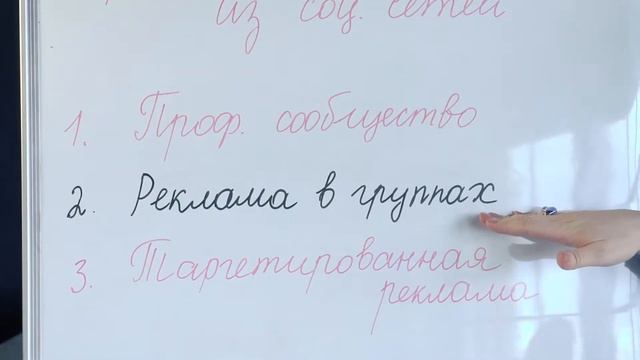 из соц. сетей
1. Проф. сообщество
2. Реклама в группах
3. Таргетированная
реклама